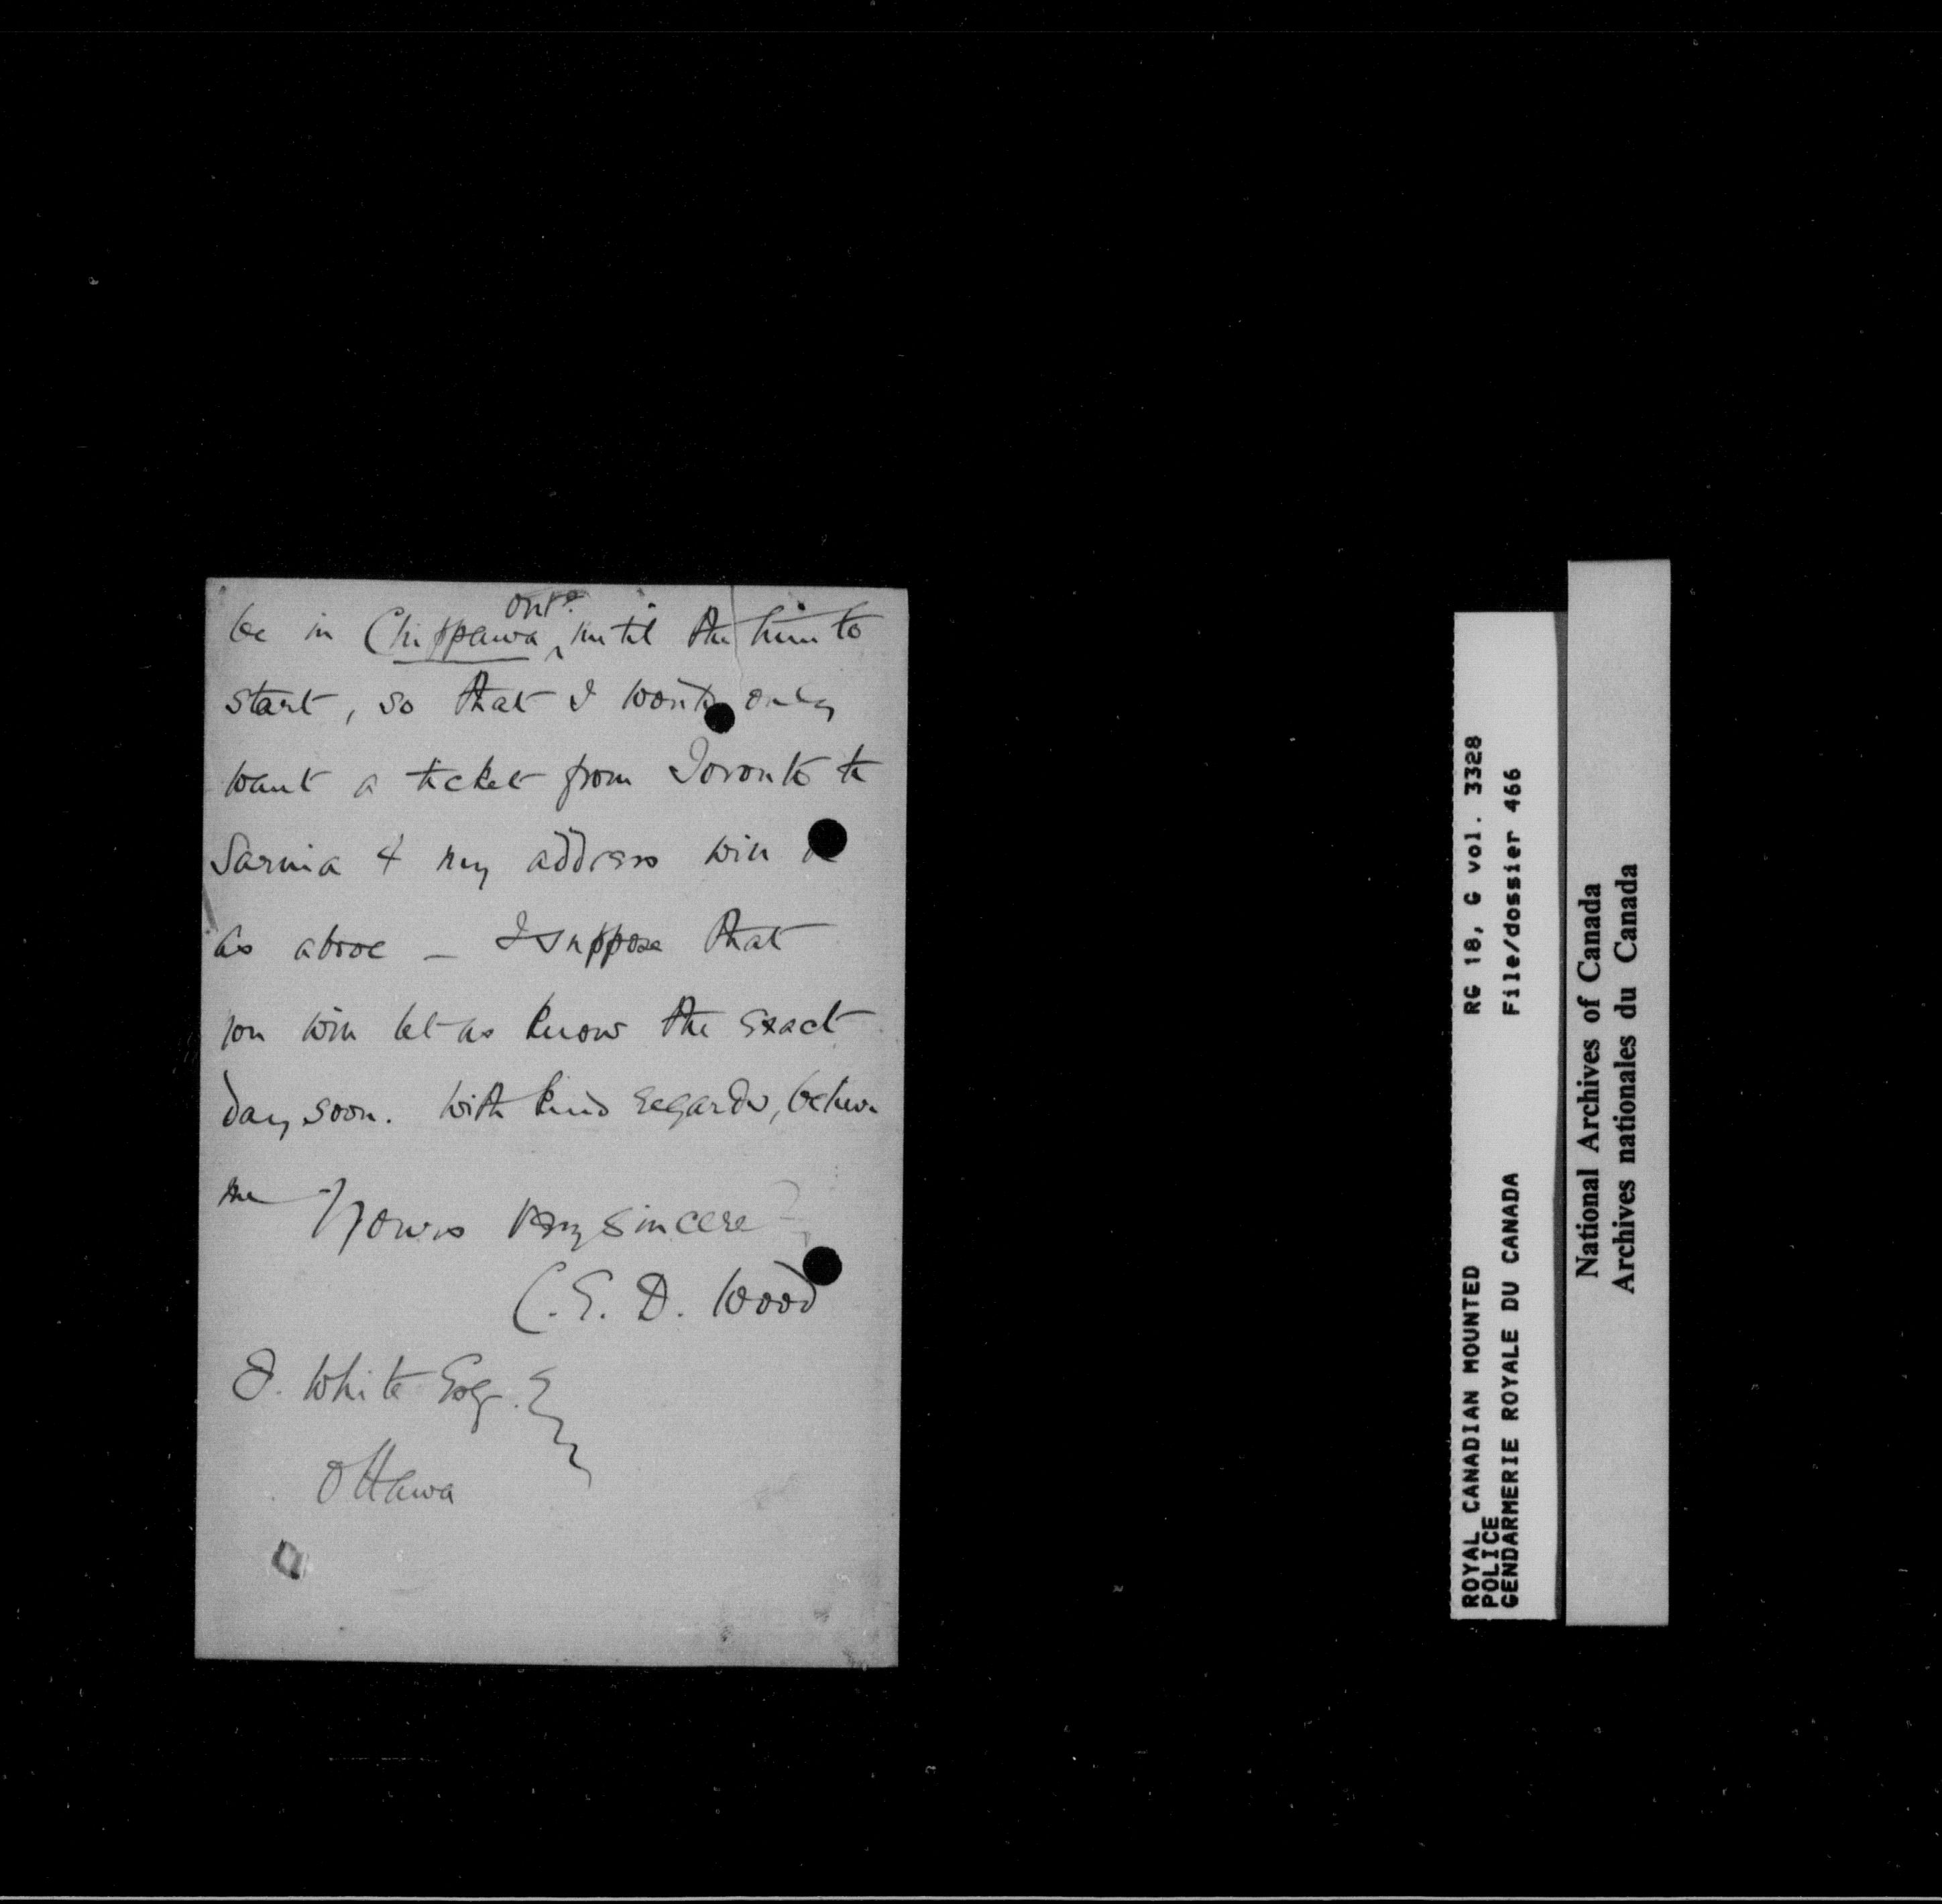 be in Chippawa, Onto. until the time to
start, so that I would only
want a ticket from Toronto to
Sarnia & my address will be
as above – I suppose that
you will let us know the exact
day soon. With kind regards, believe
me Yours very sincerely
C.E.D. Wood
F. White Esq.
Ottawa
RG 18, G vol. 3328
File/dossier 466
ROYAL CANADIAN MOUNTED
POLICE
GENDARMERIE ROYALE DU CANADA
National Archives of Canada
Archives nationales du Canada